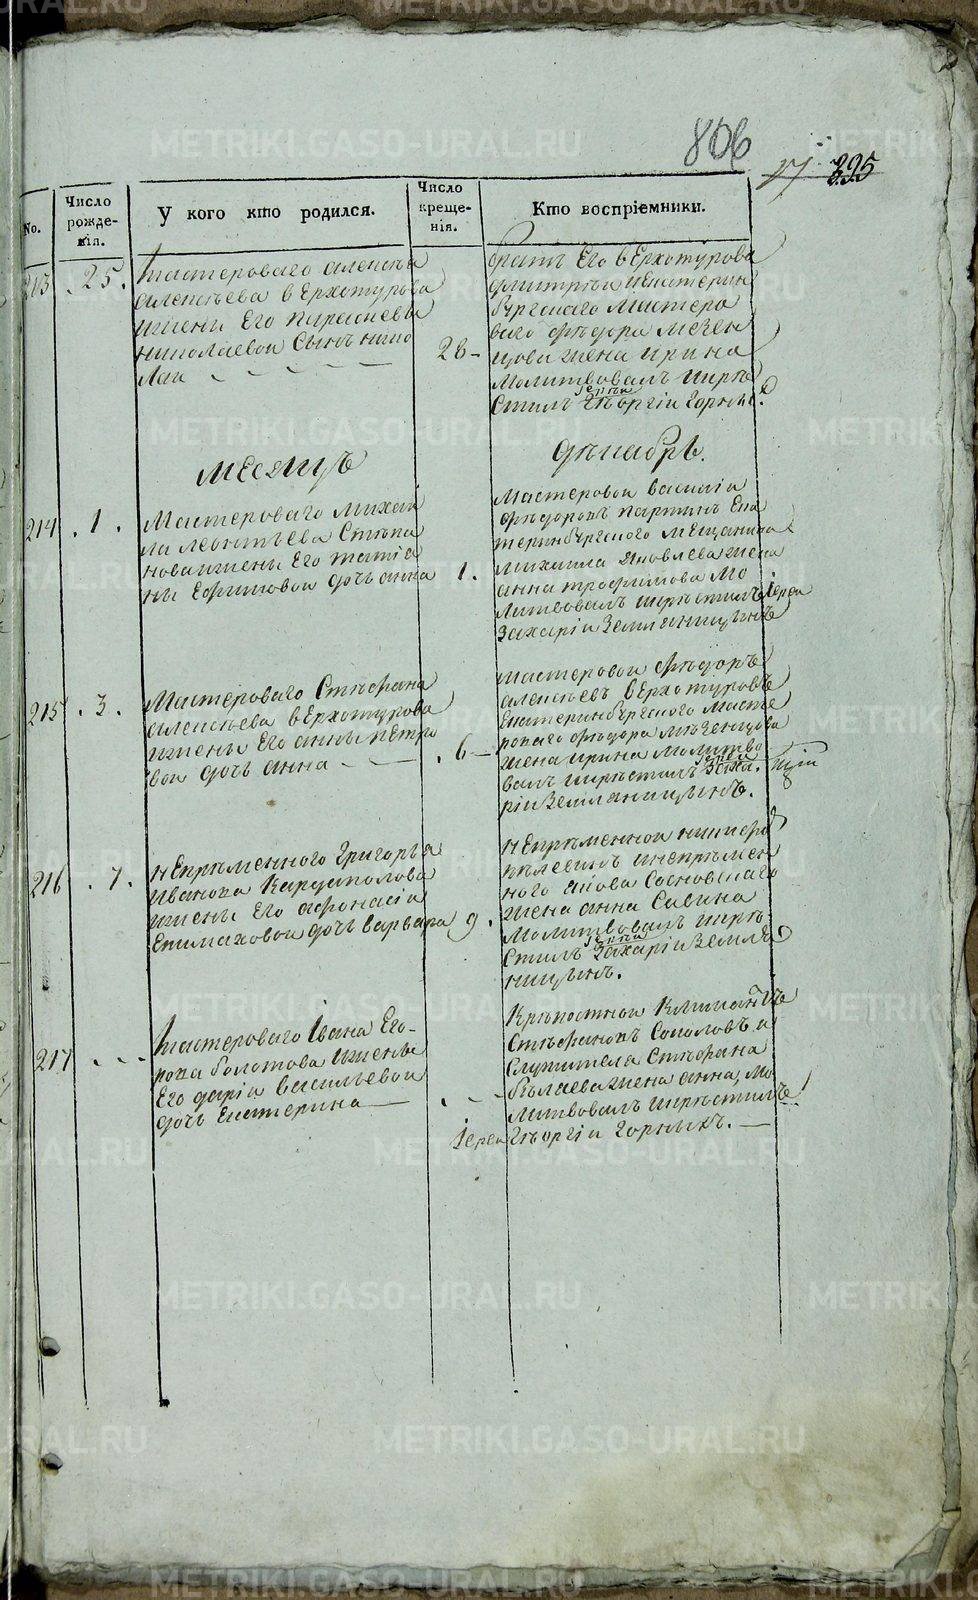 806
395
No.
Число рождения.
У кого кто родился.
Число крещенія.
Кто воспріемники.
213
. 25 .
Мастероваго алексѣя
алексѣева верхотурова
ижены Его параскевы
николаевои Сынъ нико
лаи
28 -
братъ Его верхотурова
дмитрѣи иекатерин
бургскаго мастеро
ваго фѣдора мезен
цова жена ирина
молитвовалъ икрѣ
Стилъ іереи Гѣоргіи горныхъ
месяцъ
дѣкабрь.
214
. 1 .
Мастероваго михаи
ла леонтьева Стѣпа
нова ижены Его татіа
ны Ефимовои дочь анна
1.
мастеровои василіи
фѣдоровъ патинъ Ека
теринбургскаго мещанина
михаила яковлева жена
анна трофимова мо
литвовалъ икрѣстилъ іереи
Захаріи Земляницынъ
215
. 3 .
Мастероваго Стѣфана
алексѣева верхотурова
ижены Его анны петро
вои дочь анна
. 6 -
мастеровои фѣдоръ
алексѣевъ верхотуровъ
Екатеринбургскаго масте
роваго фѣдора мѣзенцова
жена ирина молитво
валъ икрѣстилъ іереи Заха.
ріи Земляницынъ.
216
. 7 .
нЕпрѣменного Григорья
иванова Карпуполова
ижены Его афонасіи
Епимаховои дочь варвара
9 .
нЕпрѣменнои никифор
пѣлевинъ инепрѣмен
ного якова Сосновскаго
жена анна Савина
молитвовалъ икрѣ
Стилъ іереи Захаріи Земля
ницынъ.
217
Мастероваго Івана Его-
рова болотова ижены
Его даріи васильевои
дочь Екатерина
Крѣпостнои Климантъ
Стѣфановъ Соколовъ и
Служителя Стѣфана
бѣлаева жена анна, мо
литвовалъ икрѣстилъ
Іереи Гѣоргіи горныхъ.
METRIKI.GASO-URAL.RU